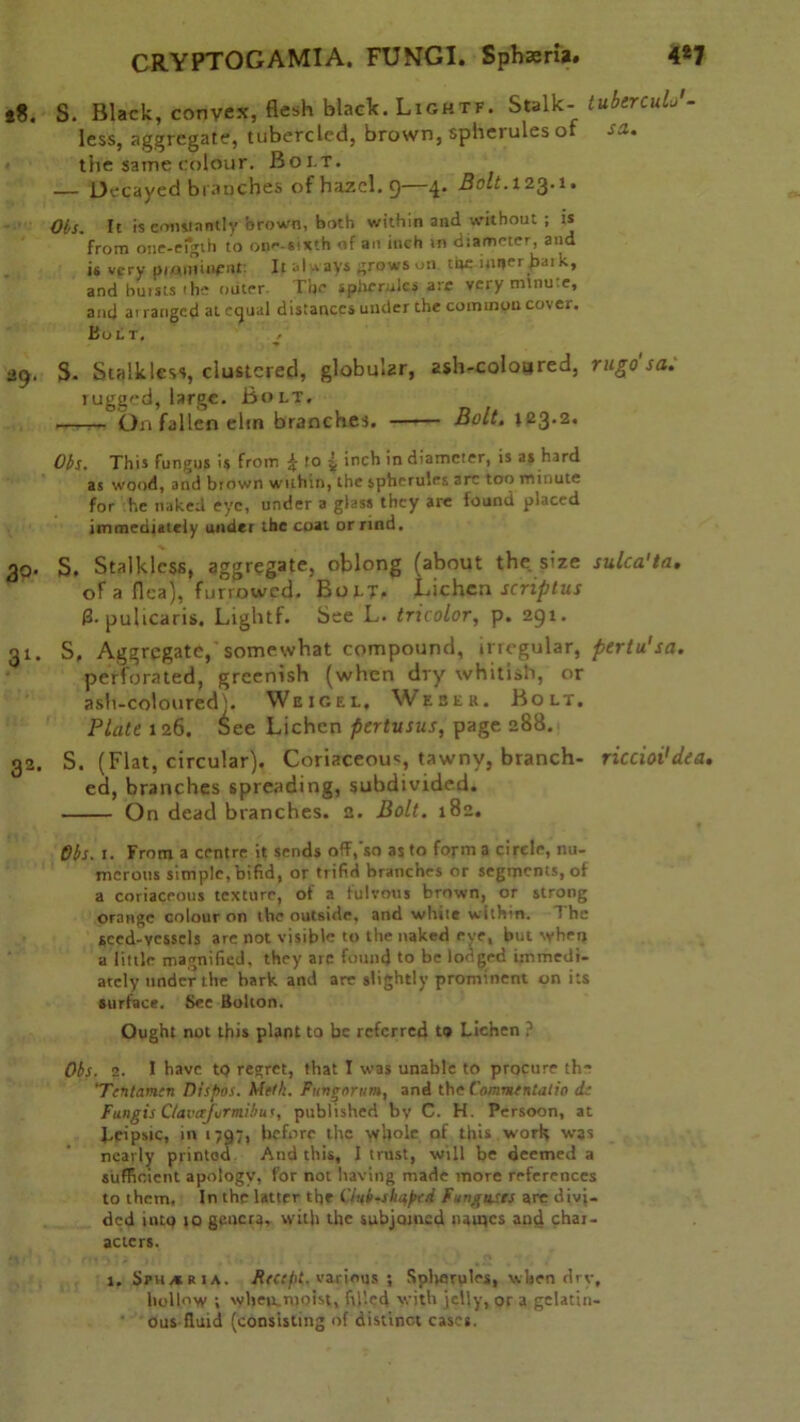 CRYPTOGAMIA. FUNGI. Sphæria. 427
28. S. Black, convex, flesh black. LIGHTF. Stalk- tuberculo'-
less, aggregate, tubercled, brown, spherules of sa.
the same colour. BOLT.
— Decayed branches of hazel. 9—4. Bolt. 123.1.
Obs. It is constantly brown, both within and without; is
from one-eigth to one-sixth of an inch in diameter, and
is very prominent: It always grows on the inner bark,
and bursts the outer. The spherules are very minute,
and arranged at equal distances under the common cover.
BOLT.
29. S. Stalkless, clustered, globular, ash-coloured, rugo'sa.
rugged, large. BOLT.
—— On fallen elm branches. —— Bolt. 123.2.
Obs. This fungus is from ¼ to ½ inch in diameter, is as hard
as wood, and brown within, the spherules are too minute
for the naked eye, under a glass they are found placed
immediately under the coat or rind.
30. S. Stalkless, aggregate, oblong (about the size sulca'ta.
of a flea), furrowed. BOLT. Lichen scriptus
β. pulicaris. Lightf. See L. tricolor, p. 291.
31. S. Aggregate, somewhat compound, irregular, pertu'sa.
perforated, greenish (when dry whitish, or
ash-coloured). WEIGEL. WEBER. BOLT.
Plate 126. See Lichen pertusus, page 288.
32. S. (Flat, circular). Coriaceous, tawny, branch- riccioi'dea.
ed, branches spreading, subdivided.
—— On dead branches. 2. Bolt. 182.
Obs. 1. From a centre it sends off, so as to form a circle, nu-
merous simple, bifid, or trifid branches or segments, of
a coriaceous texture, of a fulvous brown, or strong
orange colour on the outside, and white within. The
seed-vessels are not visible to the naked eye, but when
a little magnified, they are found to be lodged immedi-
ately under the bark and are slightly prominent on its
surface. See Bolton.
Ought not this plant to be referred to Lichen?
Obs. 2. I have to regret, that I was unable to procure the
Tentamen Dispos. Meth. Fungorum, and the Commentatio de
Fungis Clavæformibus, published by C. H. Persoon, at
Leipsic, in 1797, before the whole of this work was
nearly printed. And this, I trust, will be deemed a
sufficient apology, for not having made more references
to them. In the latter the Club-shaped Funguses are divi-
ded into 10 genera, with the subjoined names and char-
acters.
1. SPHÆRIA. Recept. various; Spherules, when dry,
hollow; when moist, filled with jelly, or a gelatin-
ous fluid (consisting of distinct cases.